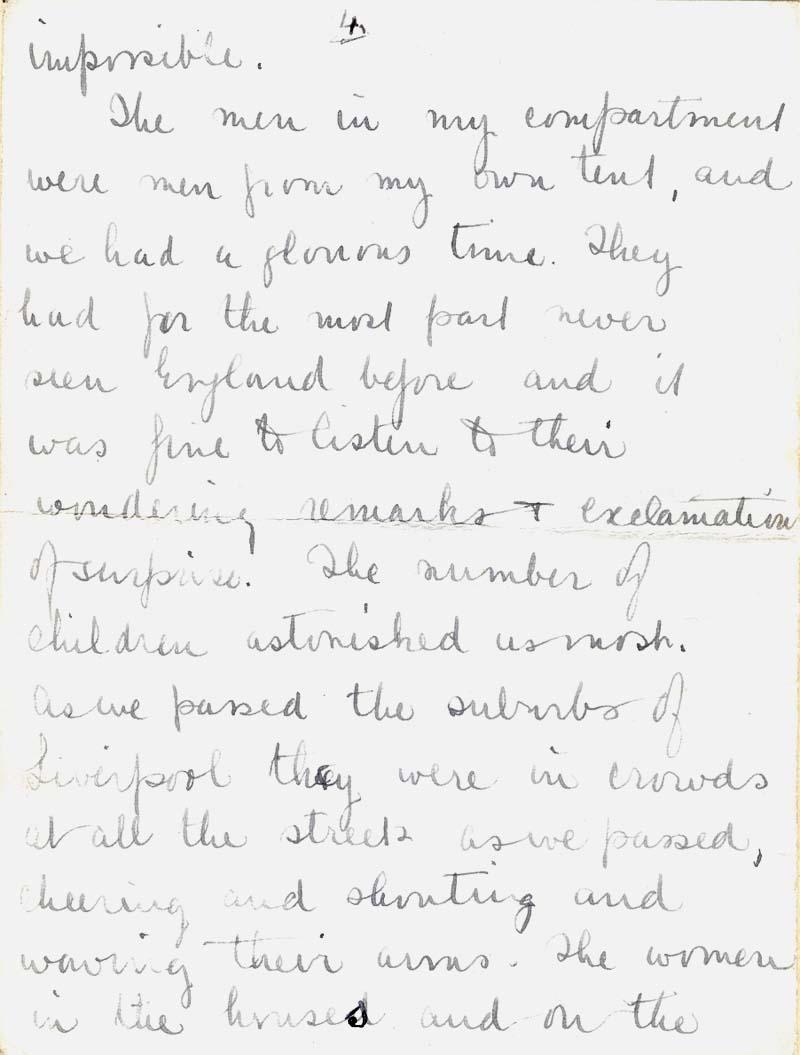 4.
impossible.
The men in my compartment
were men from my own tent, and
we had a glorious time. They
had for the most part never
seen England before and it
was fine to listen to their
wondering remarks + exclamation
of surprise! The number of
children astonished us most.
As we passed the suburbs of
Liverpool they were in crowds
at all the streets as we passed,
cheering and shouting and
waving their arms. The women
in the houses and on the